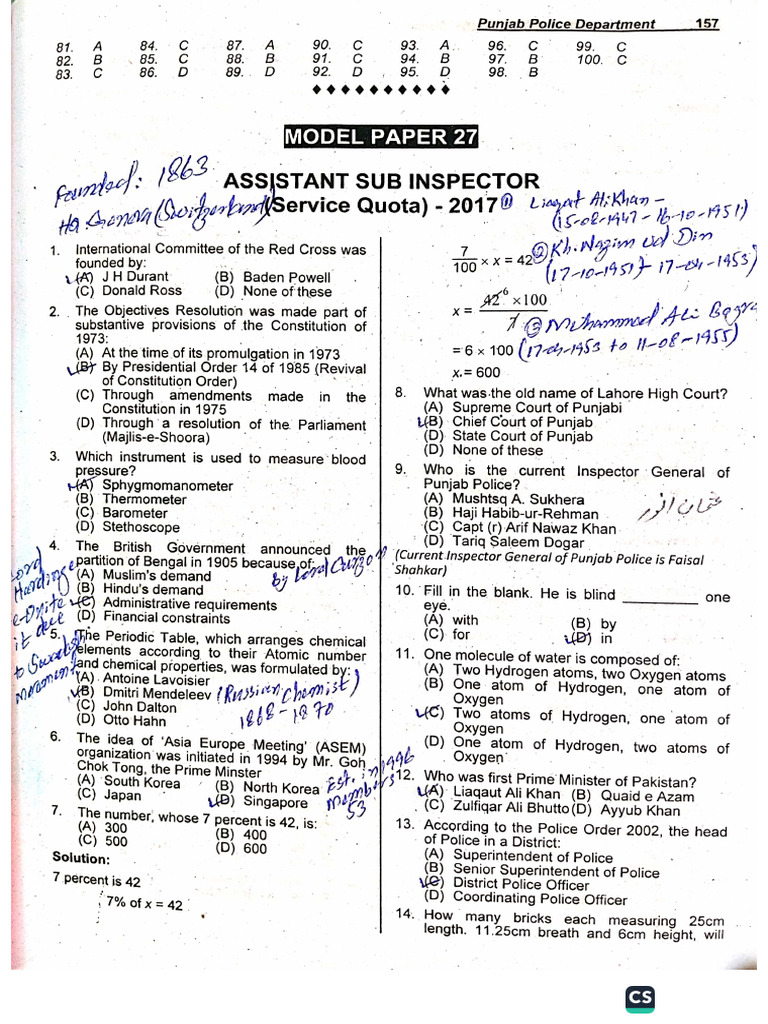 Punjab Police Department 157
81. A 84. C 87. A 90. C 93. A 96. C 99. C
82. B 85. C 88. B 91. C 94. B 97. B 100. C
83. C 86. D 89. D 92. D 95. D 98. B
MODEL PAPER 27
ASSISTANT SUB INSPECTOR
(Service Quota) - 2017
Founded: 1863
HQ Geneva (Switzerland)
1. International Committee of the Red Cross was
founded by:
(A) J H Durant (B) Baden Powell
(C) Donald Ross (D) None of these
2. The Objectives Resolution was made part of
substantive provisions of the Constitution of
1973:
(A) At the time of its promulgation in 1973
(B) By Presidential Order 14 of 1985 (Revival
of Constitution Order)
(C) Through amendments made in the
Constitution in 1975
(D) Through a resolution of the Parliament
(Majlis-e-Shoora)
3. Which instrument is used to measure blood
pressure?
(A) Sphygmomanometer
(B) Thermometer
(C) Barometer
(D) Stethoscope
4. The British Government announced the
partition of Bengal in 1905 because of:
(A) Muslim's demand by Lord Curzon
(B) Hindu's demand
(C) Administrative requirements
(D) Financial constraints
Lord
Hardinge
it due
to Swadeshi
movement
5. The Periodic Table, which arranges chemical
elements according to their Atomic number
and chemical properties, was formulated by:
(A) Antoine Lavoisier
(B) Dmitri Mendeleev (Russian Chemist)
(C) John Dalton 1868-1870
(D) Otto Hahn
6. The idea of 'Asia Europe Meeting' (ASEM)
organization was initiated in 1994 by Mr. Goh
Chok Tong, the Prime Minster
(A) South Korea (B) North Korea
(C) Japan (D) Singapore
Est. in 1996
members
53
7. The number, whose 7 percent is 42, is:
(A) 300 (B) 400
(C) 500 (D) 600
Solution:
7 percent is 42
7% of x = 42
① Liaqat Ali Khan -
(15-08-1947 - 16-10-1951)
7/100 × x = 42
② Kh. Nazim ud Din
(17-10-1951 - 17-04-1953)
x = 42 6 × 100 / 7
③ Muhammad Ali Bogra
= 6 × 100 (17-04-1953 to 11-08-1955)
x = 600
8. What was the old name of Lahore High Court?
(A) Supreme Court of Punjabi
(B) Chief Court of Punjab
(D) State Court of Punjab
(D) None of these
9. Who is the current Inspector General of
Punjab Police?
(A) Mushtsq A. Sukhera
(B) Haji Habib-ur-Rehman
(C) Capt (r) Arif Nawaz Khan
(D) Tariq Saleem Dogar
عثمان انور
(Current Inspector General of Punjab Police is Faisal
Shahkar)
10. Fill in the blank. He is blind __________ one
eye.
(A) with (B) by
(C) for (D) in
11. One molecule of water is composed of:
(A) Two Hydrogen atoms, two Oxygen atoms
(B) One atom of Hydrogen, one atom of
Oxygen
(C) Two atoms of Hydrogen, one atom of
Oxygen
(D) One atom of Hydrogen, two atoms of
Oxygen
12. Who was first Prime Minister of Pakistan?
(A) Liaqaut Ali Khan (B) Quaid e Azam
(C) Zulfiqar Ali Bhutto (D) Ayyub Khan
13. According to the Police Order 2002, the head
of Police in a District:
(A) Superintendent of Police
(B) Senior Superintendent of Police
(C) District Police Officer
(D) Coordinating Police Officer
14. How many bricks each measuring 25cm
length. 11.25cm breath and 6cm height, will
CS